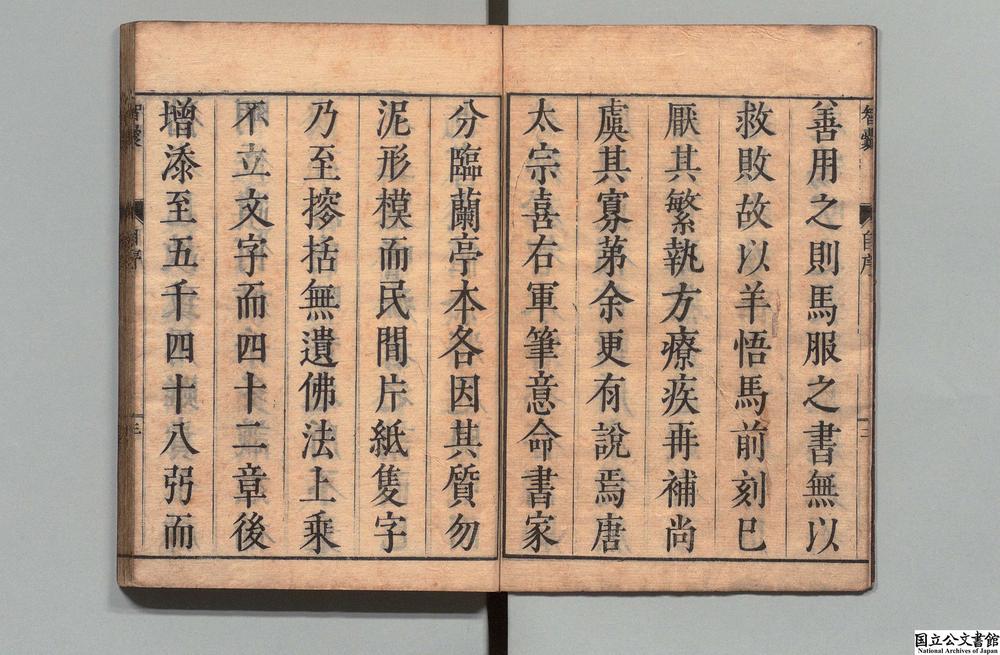 智囊
自序
二
善用之則馬服之書無以
救敗故以羊悟馬前刻巳
厭其繁執方療疾再補尚
虞其寡苐余更有說焉唐
太宗喜右軍筆意命書家
分臨蘭亭本各因其質勿
泥形模而民間片紙隻字
乃至搃括無遺佛法上乘
不立文字而四十二章後
增添至五千四十八弜而
智囊
自序
三
国立公文書館
National Archives of Japan